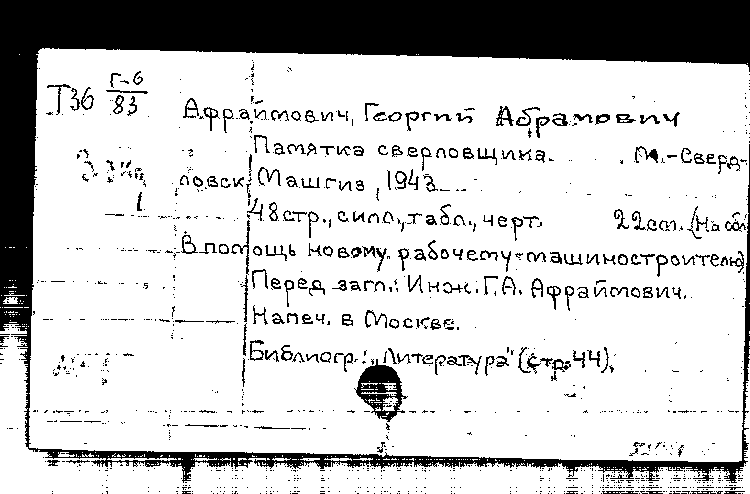 Т36 Г-6
83
Афраймович, Георгий Абрамович
Памятка сверловщика. М.-Сверд-
ловск, Машгиз, 1943.
48 стр., с илл., табл., черт. 22 см. (На обл
В помощь новому рабочему-машиностроителю)
Перед загл.: Инж. Г.А. Афраймович.
Напеч. в Москве.
Библиогр.: "Литература" (стр. 44).